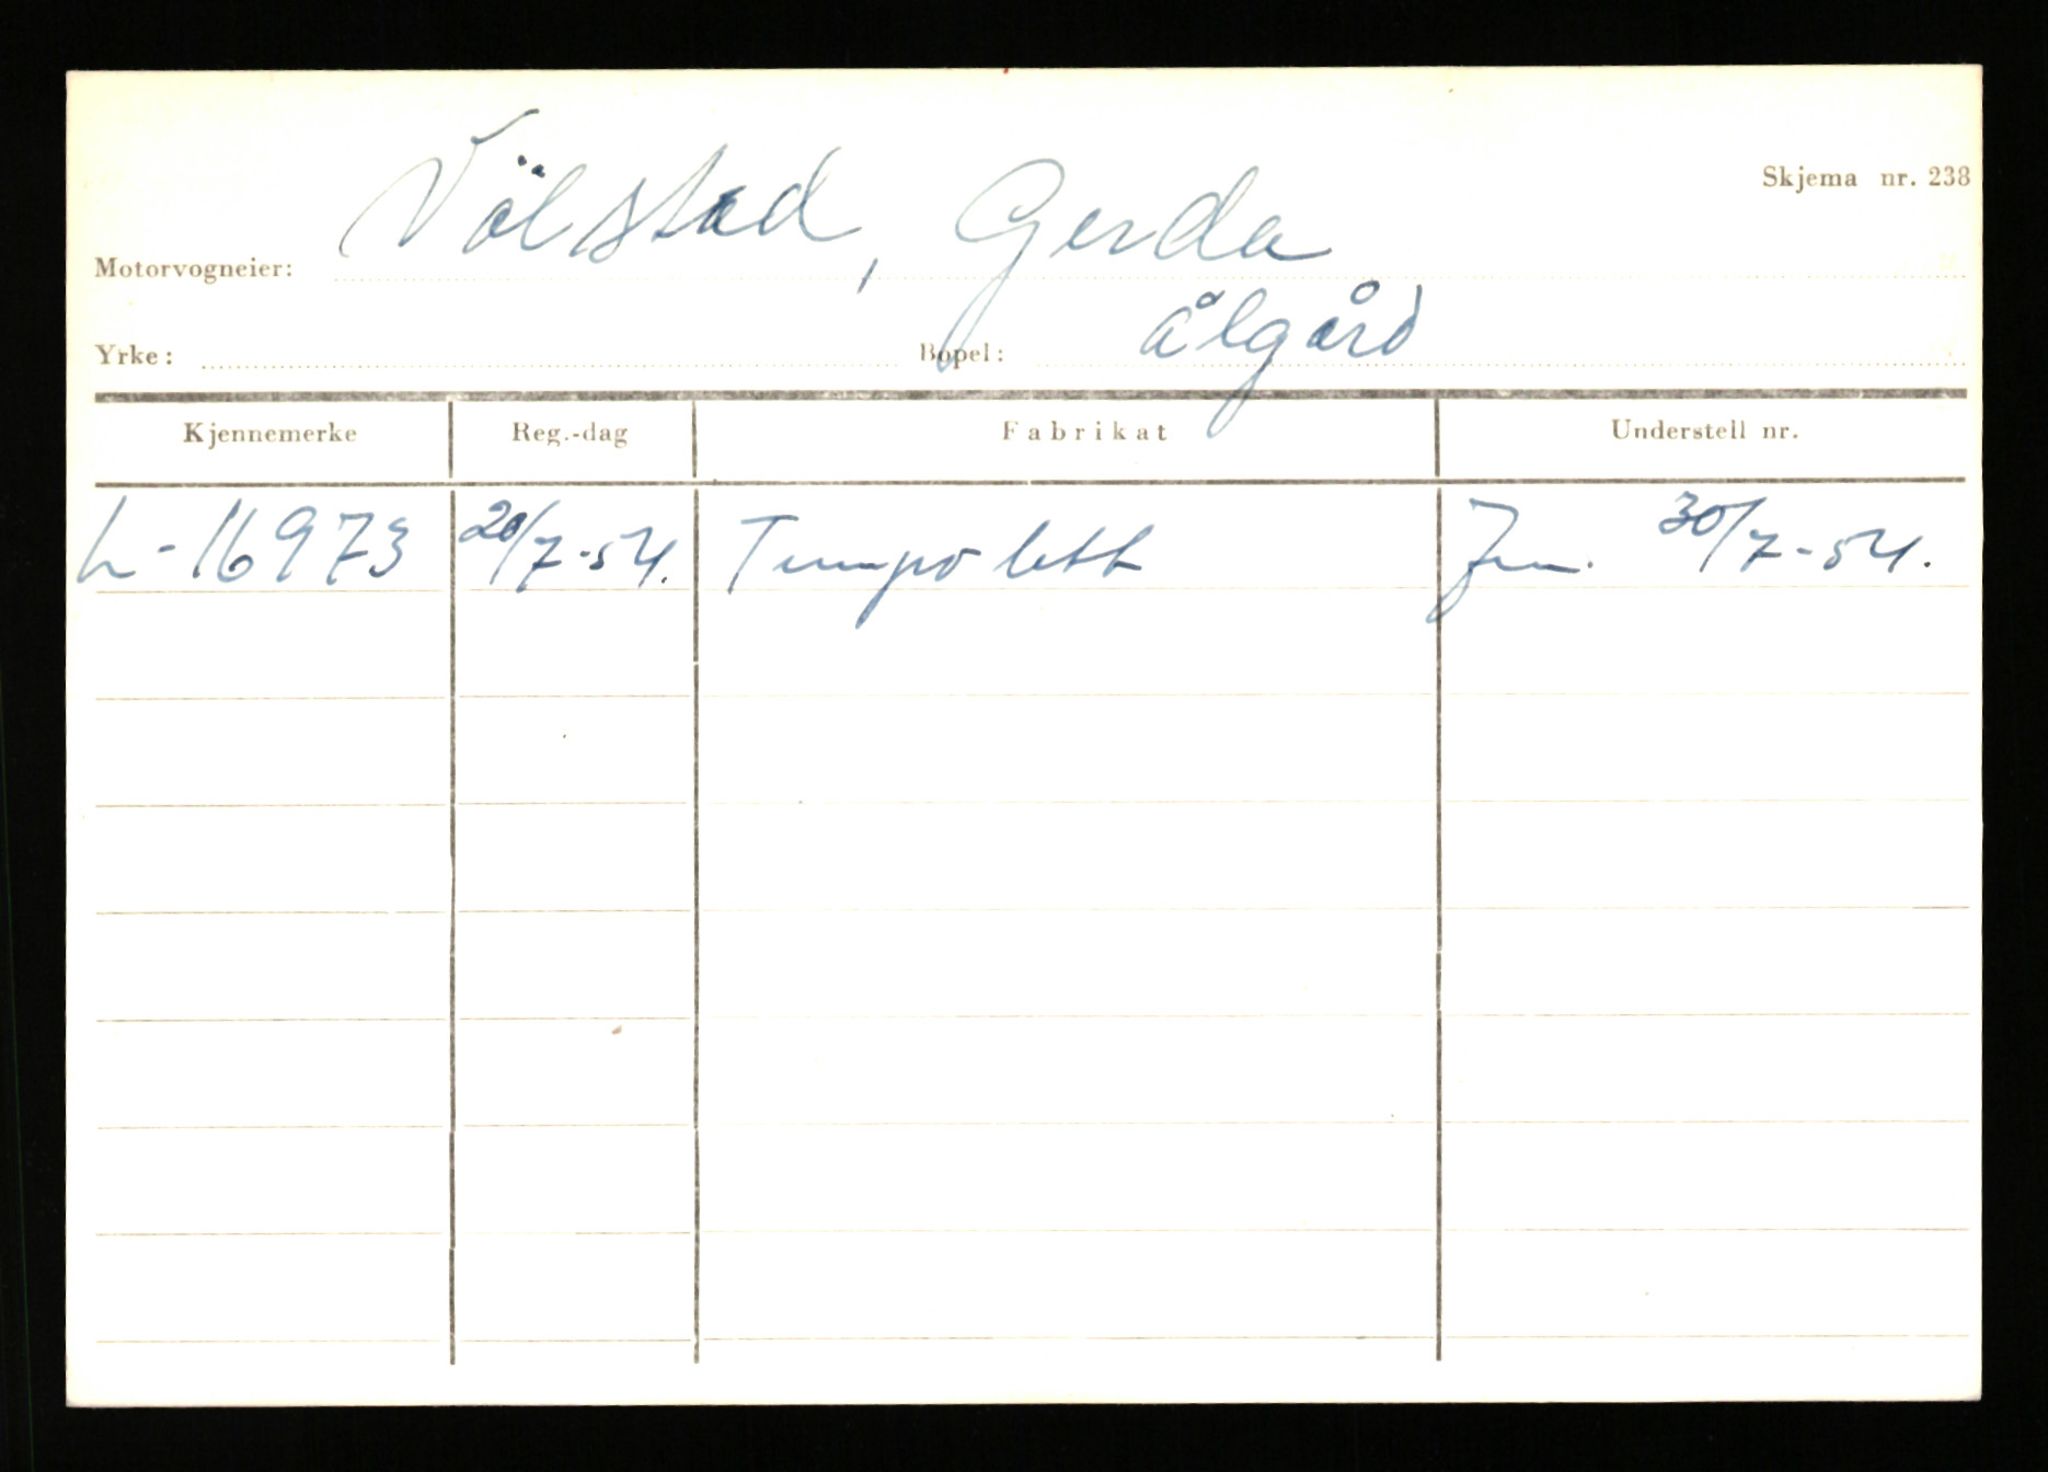 Skjema nr. 238
Motorvogneier: Völstad, Gerda
Yrke: Bopel: Ålgård
Kjennemerke Reg.-dag Fabrikat Understell nr.
L-16973 20/7-54. Tempo lett 30/7-54.